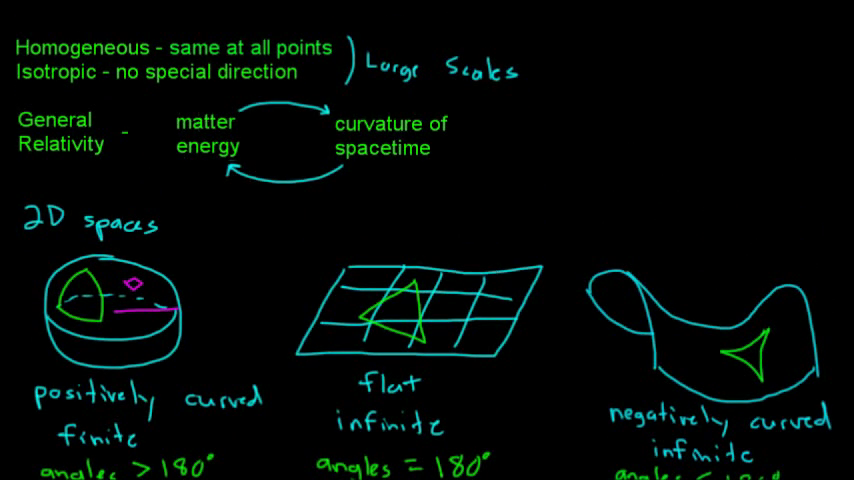 Homogeneous - same at all points
Isotropic - no special direction
Large Scales
General Relativity -
matter energy
curvature of spacetime
2D spaces
positively curved
finite
angles > 180°
flat
infinite
angles = 180°
negatively curved
infinite
angles